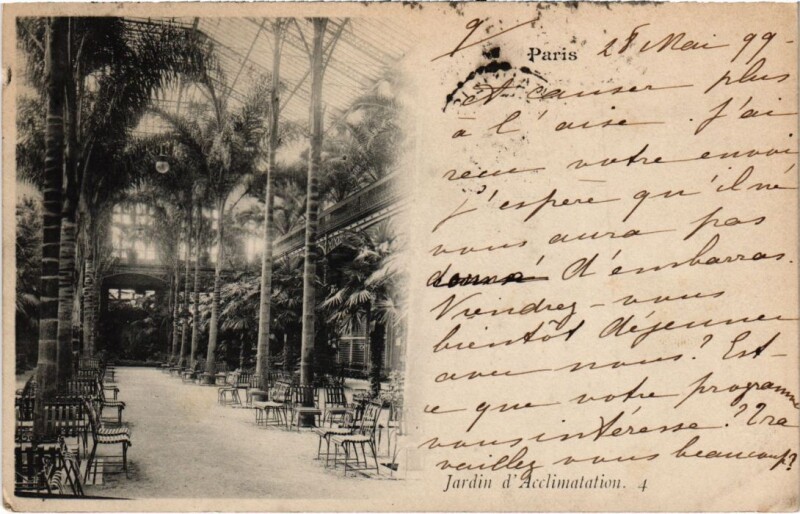 2/
Paris 28 Mai 99-
et causer plus
à l'aise. J'ai
reçu votre envoi
J'espère qu'il ne
vous aura pas
donné d'embarras.
Viendrez-vous
bientôt déjeuner
avec nous? Est-
ce que votre programme
vous intéresse? Tra
vaillez vous beaucoup?
Jardin d'Acclimatation. 4